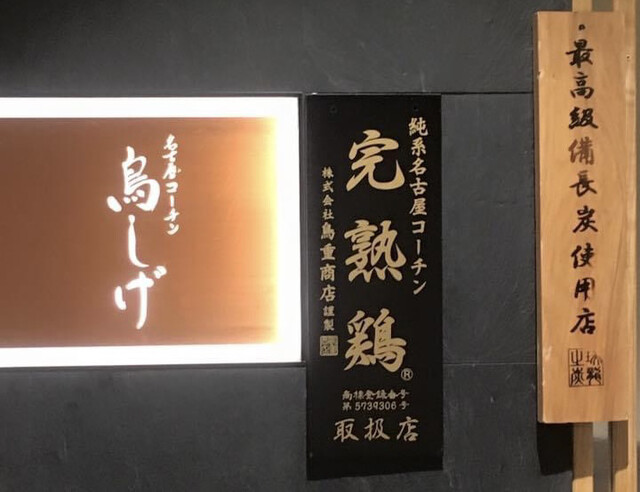 最高級備長炭使用店
純系名古屋コーチン
完熟鶏®
株式会社鳥重商店謹製
商標登録番号
第5739306号
取扱店
名古屋コーチン
鳥しげ